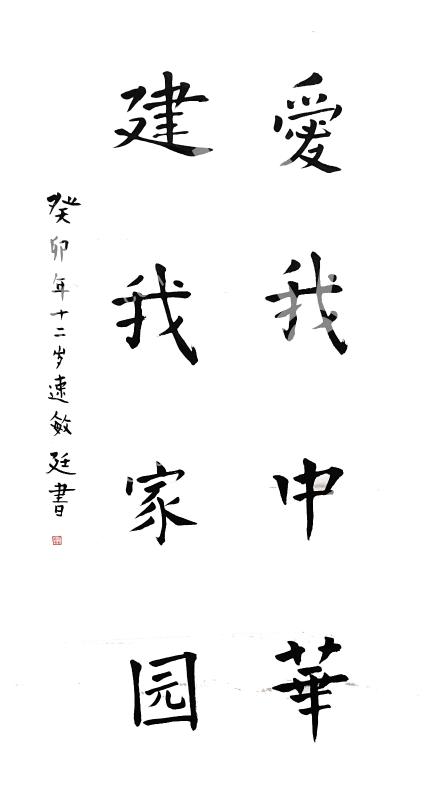 愛我中華
建我家园
癸卯年十二岁速敏廷書